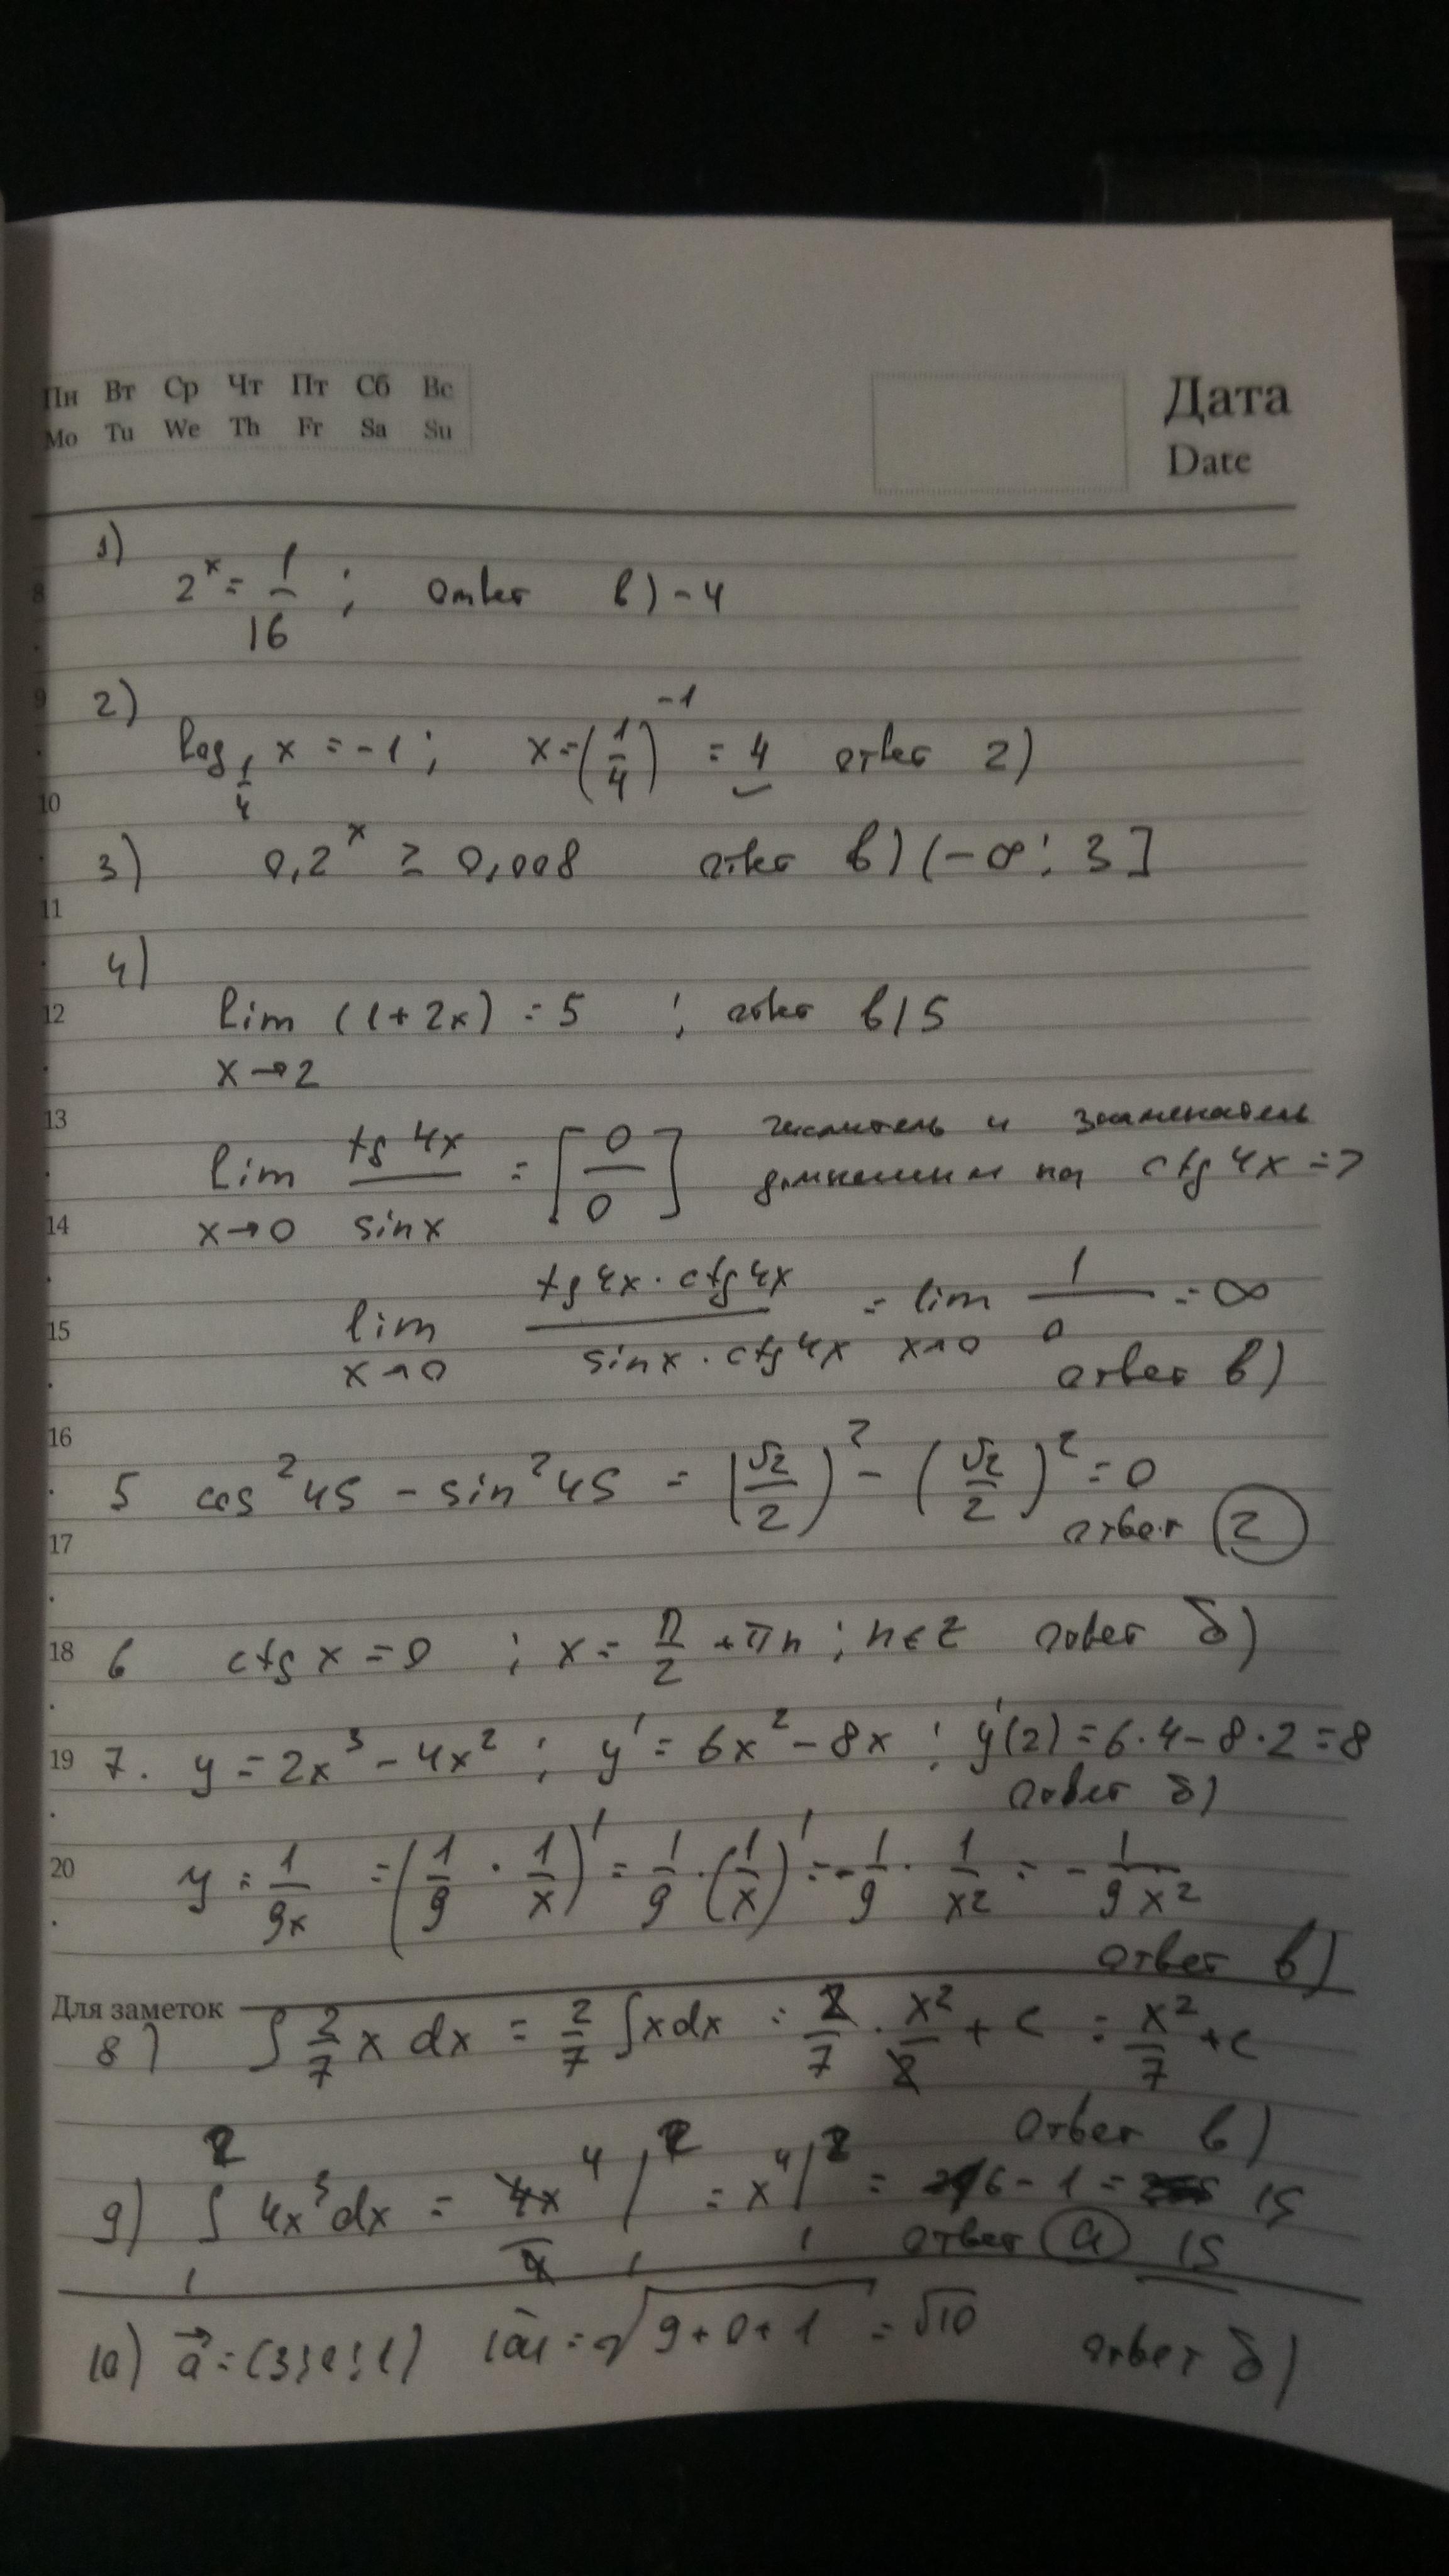 Пн Вт Ср Чт Пт Сб Вс
Mo Tu We Th Fr Sa Su
Дата
Date
1)
8 2^x = 1/16 ; ответ в) -4
9 2)
log_{1/4} x = -1 ; x = (1/4)^{-1} = 4 ответ г)
10
3) 0,2^x ≥ 0,008 ответ в) (-∞; 3]
11
4)
12 lim (1+2x) = 5 ; ответ в) 5
x→2
13
lim tg 4x / sin x = [0/0] числитель и знаменатель
x→0 домножим на ctg 4x =>
14
15 lim tg 4x · ctg 4x / sin x · ctg 4x = lim 1/0 = ∞
x→0 x→0
ответ в)
16
5 cos²45 - sin²45 = (√2/2)² - (√2/2)² = 0
17 ответ г
18 6 ctg x = 0 ; x = π/2 + πn ; n∈Z ответ б)
19 7. y = 2x³ - 4x² ; y' = 6x² - 8x ; y'(2) = 6·4 - 8·2 = 8
ответ б)
20 y = 1/9x = (1/9 · 1/x)' = 1/9 · (1/x)' = - 1/9 · 1/x2 = - 1/9x²
ответ в)
Для заметок
8) ∫ 2/7 x dx = 2/7 ∫ x dx = 2/7 · x²/2 + c = x²/7 + c
ответ в)
9) ∫₁² 4x³dx = 4x⁴/4 |₁² = x⁴|₁² = 16 - 1 = 15
ответ а 15
10) a⃗ = (3; 0; 1) |a| = √9+0+1 = √10 ответ б)